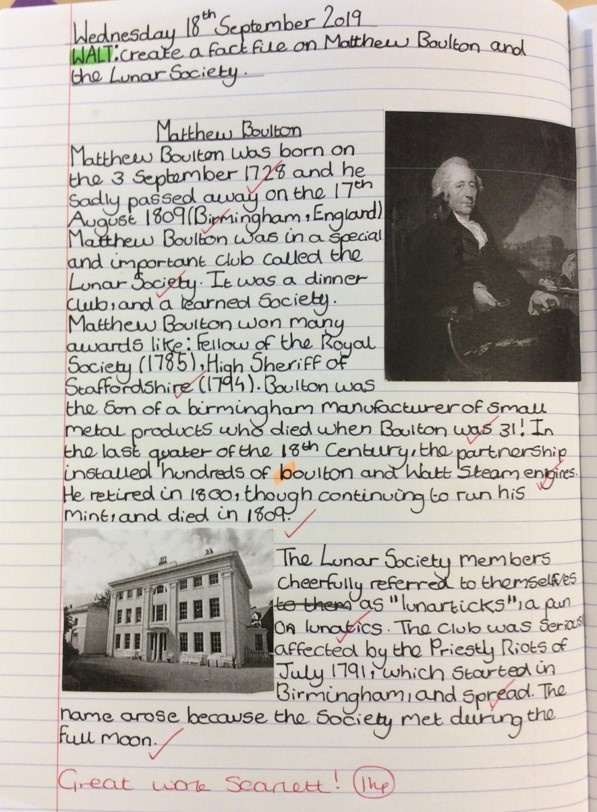 Wednesday 18th September 2019
WALT: create a fact file on Matthew Boulton and
the Lunar Society.
Matthew Boulton
Matthew Boulton was born on
the 3 September 1728 and he
sadly passed away on the 17th
August 1809 (Birmingham, England)
Matthew Boulton was in a special
and important club called the
Lunar Society. It was a dinner
club, and a learned Society.
Matthew Boulton won many
awards like: Fellow of the Royal
Society (1785), High Sheriff of
Staffordshire (1794). Boulton was
the son of a birmingham manufacturer of small
metal products who died when Boulton was 31! In
the last quater of the 18th Century, the partnership
installed hundreds of boulton and Watt Steam engines.
He retired in 1800, though continuing to run his
mint, and died in 1809.
The Lunar Society members
cheerfully referred to themselves
to them as "lunarticks", a pun
on lunatics. The club was Serious
affected by the Priestly Riots of
July 1791, which started in
Birmingham, and spread. The
name arose because the Society met during the
full moon.
Great work Scarlett! 1hp